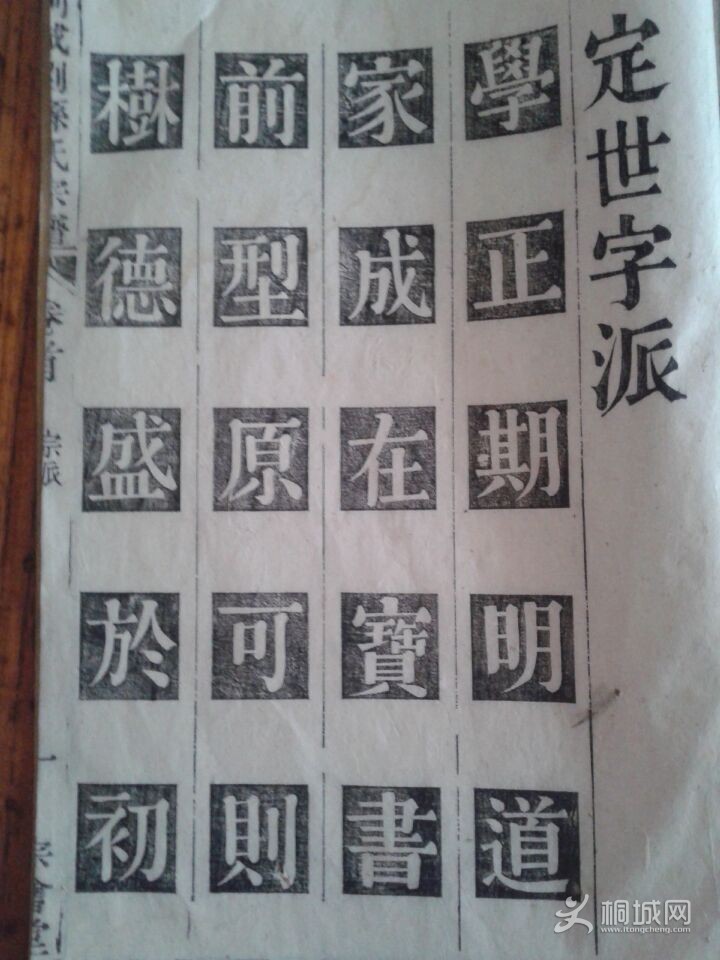 定世字派
學正期明道
家成在寶書
前型原可則
樹德盛於初
孫氏宗譜
卷首
宗派
一
桐城网
www.itongcheng.com